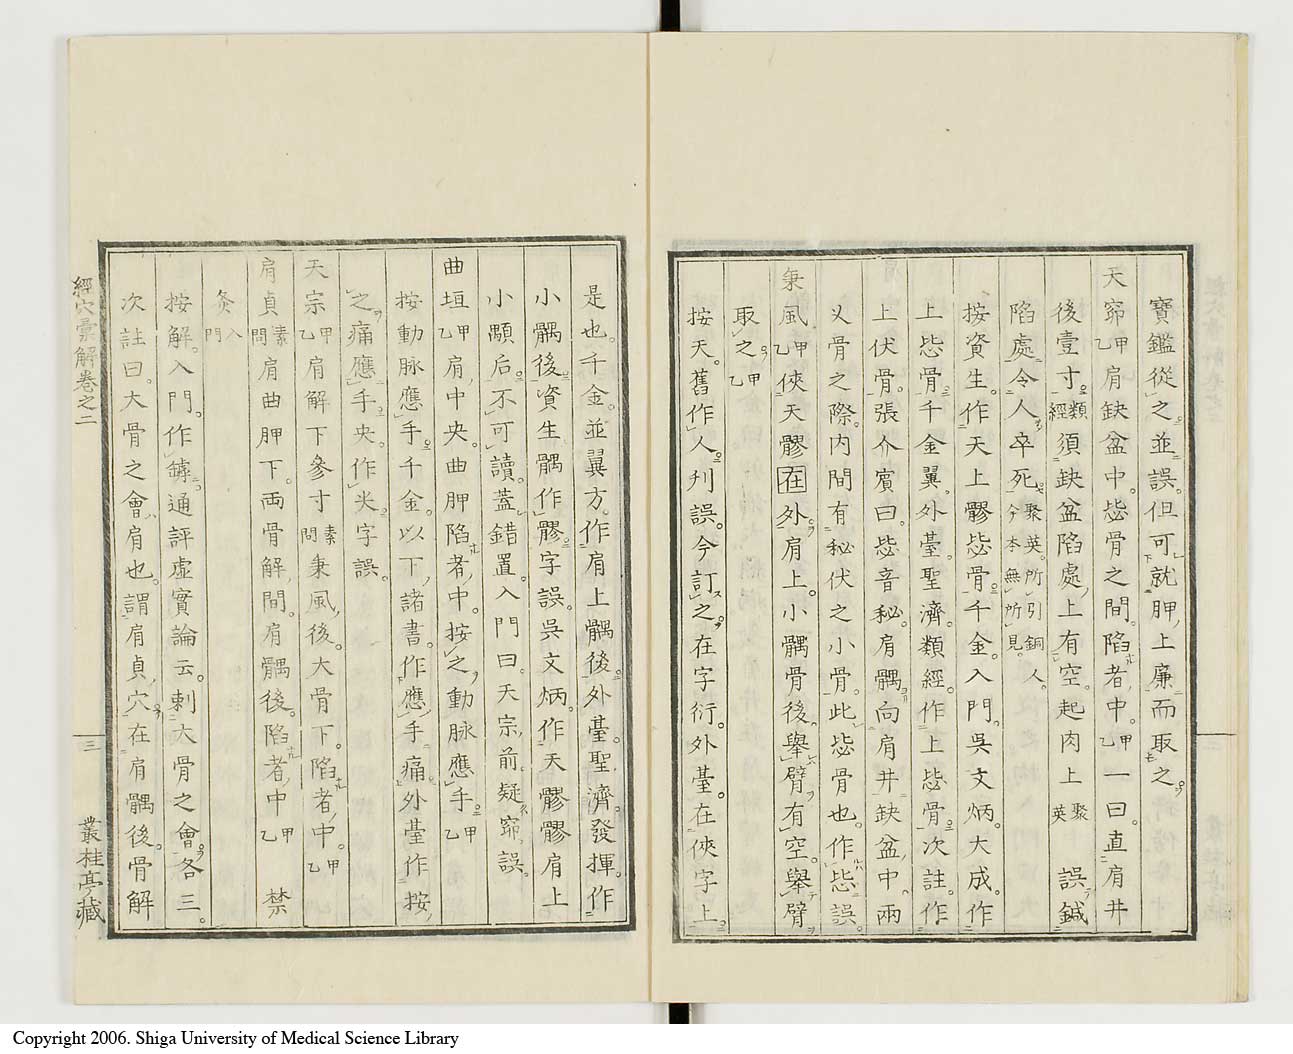 寶鑑從之並誤但可就胛上廉而取之
天窌甲乙肩缺盆中毖骨之間陷者中甲乙一曰直肩井
後壹寸類經須缺盆陷處上有空起肉上聚英誤鍼
陷處令人卒死聚英所引銅人今本無所見
按資生作天上髎毖骨千金入門吳文炳大成作
上毖骨千金翼外臺聖濟類經作上毖骨次註作
上伏骨張介賓曰毖音秘肩髃向肩井缺盆中兩
乂骨之際内間有秘伏之小骨此毖骨也作毖誤
秉風甲乙俠天髎在外肩上小髃骨後舉臂有空舉臂
取之甲乙
按天舊作人刋誤今訂之在字衍外臺在俠字上
是也千金並翼方作肩上髃後外臺聖濟發揮作
小髃後資生髃作髎字誤吳文炳作天髎髎肩上
小顒后不可讀蓋錯置入門曰天宗前疑窌誤
曲垣甲乙肩中央曲胛陷者中按之動脉應手甲乙
按動脉應手千金以下諸書作應手痛外臺作按
之痛應手央作㳄字誤
天宗甲乙肩解下參寸素問秉風後大骨下陷者中甲乙
肩貞素問肩曲胛下兩骨解間肩髃後陷者中甲乙禁
灸入門
按解入門作罅通評虛實論云刺大骨之會各三
次註曰大骨之會肩也謂肩貞穴在肩髃後骨解
經穴彙解卷之二
三
叢桂亭藏
Copyright 2006. Shiga University of Medical Science Library